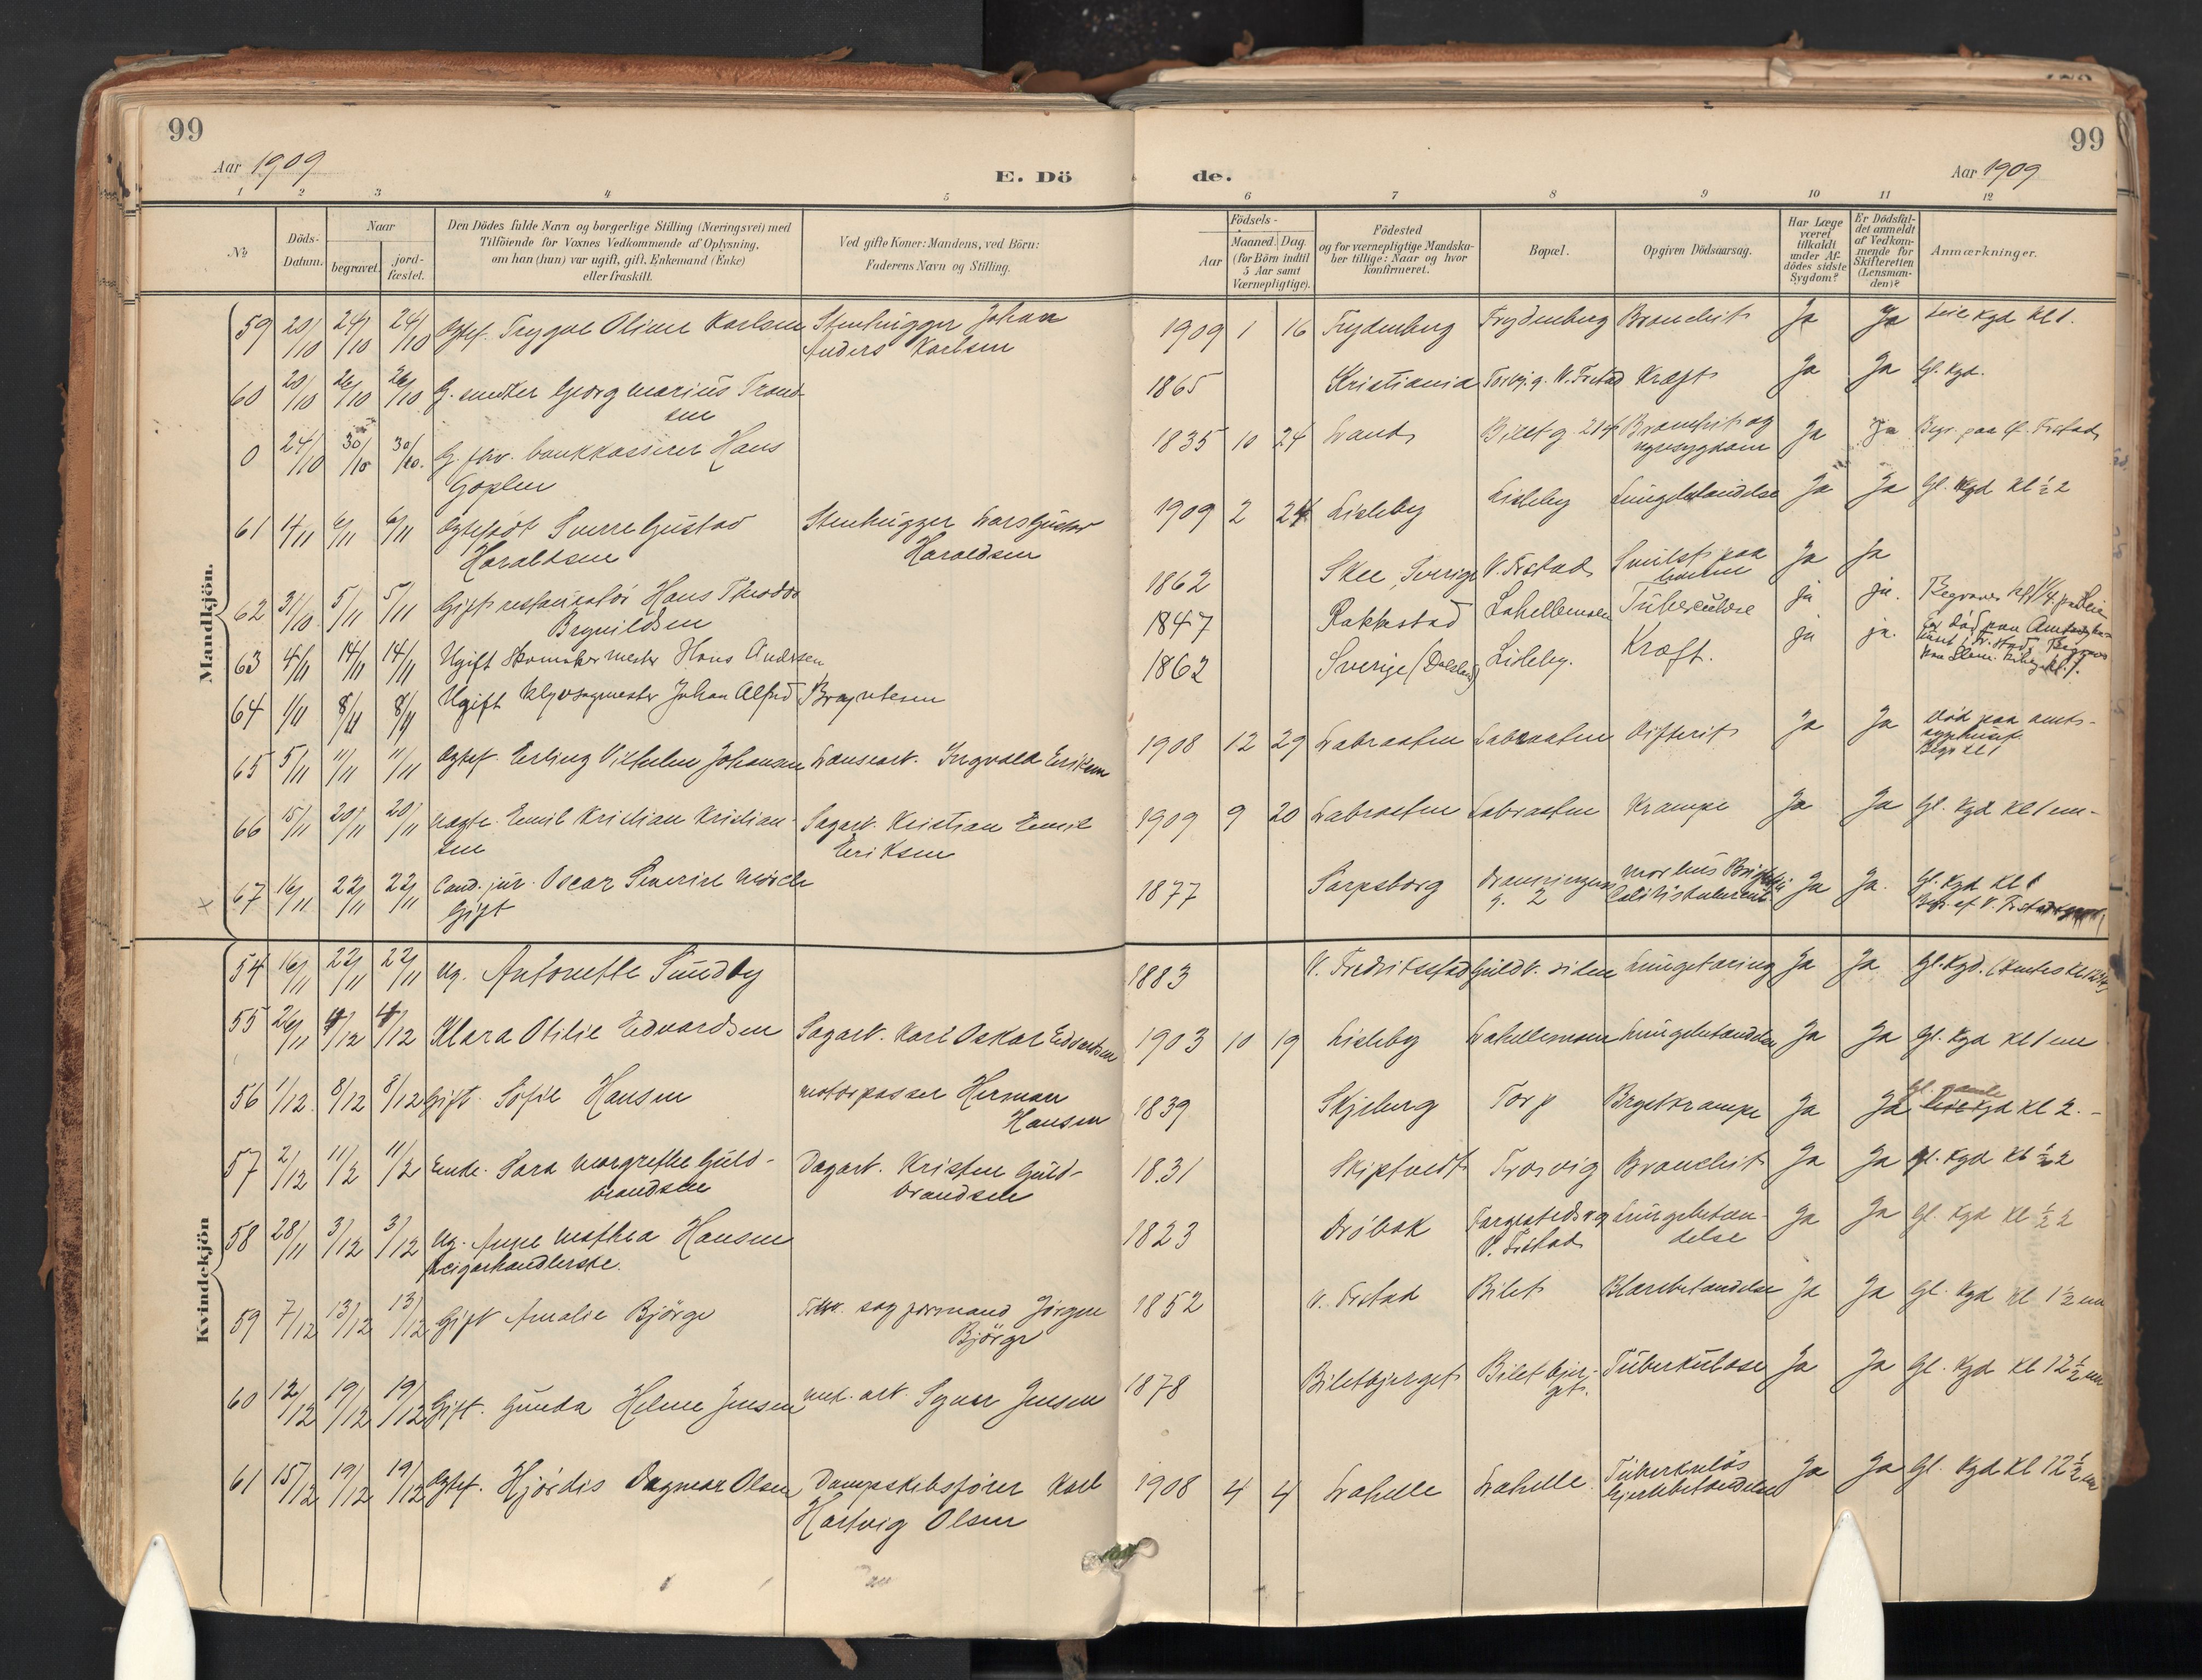 99
99
Aar 1909
E. Dö
de.
Aar 1909
1 2 3 4 5 6 7 8 9 10 11 12
No
Döds-Datum.
Naar
begravet.
jord-fæstet.
Den Dödes fulde Navn og borgerlige Stilling (Næringsvei) med
Tilföiende for Voxnes Vedkommende af Oplysning,
om han (hun) var ugift, gift, Enkemand (Enke)
eller fraskilt.
Ved gifte Koner: Mandens, ved Börn:
Faderens Navn og Stilling.
Födsels-
Aar
Maaned. Dag.
(for Börn indtil
5 Aar samt
Værnepligtige).
Födested
og for værnepligtige Mandska-
ber tillige: Naar og hvor
konfirmeret.
Bopæl.
Opgiven Dödsaarsag.
Har Læge
været
tilkaldt
under Af-
dödes sidste
Sygdom?
Er Dödsfal-
det anmeldt
af Vedkom-
mende for
Skifteretten
(Lensman-
den)?
Anmærkninger.
Mandkjön.
59 20/10 24/10 24/10 Ægtef. Trygve Olime Karlsen Stenhugger Johan 1909 1 16 Trydenborg Trydenborg Bronchit Ja Ja Leie Kgd Kl 1.
Anders Karlsen
60 20/10 26/10 26/10 G. smelter Georg Marius Trond- 1865 Kristiania V. Frstad Kræft Ja Ja Gl. Kgd.
sen
0 24/10 30/10 30/10. G. fhv. bankkasserer Hans 1835 10 24 Bronchit og Ja Ja Begr. paa Fr.stad
Goplen nyresygdom
61 4/11 6/11 6/11 Ægtefödt Sverre Gustav Stenhugger Lars Gustav 1909 2 24 Lisleby Lisleby Lungebetændelse Ja Ja Gl. Kgd Kl ½ 2
Haraldsen Haraldsen
62 31/10 5/11 5/11 Gift restauratör Hans Theodor 1862 Skee, Sverige V. Frstad paa Ja Ja
Brynildsen
63 4/11 14/11 14/11 Ugift Skomakermester Hans Andersen 1847 Rakkestad Lahellemoen Tuberculose ja ja.
64 1/11 8/11 8/11 Ugift Johan Alfred Bryntesen 1862 Sverige (Dalsland) Lisleby. Kræft. ja ja. död paa
65 5/11 11/11 11/11 Ægtef. Erling Vilhelm Johansen Ingvald Eriksen 1908 12 29 Labraaten Labraaten Difterit Ja Ja Död paa amts-
sygehuset
Begr Kl 1
66 15/11 20/11 20/11 Uægte. Emil Kristian Kristian- Sagarb. Kristian Emil 1909 9 20 Labraaten Labraaten Krampe Ja Ja Gl. Kgd Kl 1 em-
sen Eriksen
× 67 16/11 22/11 22/11 Cand. jur. Oscar Severin Mörch 1877 Sarpsborg Dronningens Ja Ja. Gl. Kgd Kl 1
Gift g. 2
Kvindekjön
54 16/11 22/11 22/11 Ug. Antonette Sundby 1883 V. Fredrikstad Lungetæring Ja Ja Gl. Kgd.
55 26/11 4/12 4/12 Klara Otilie Edvardsen Sagarb. Karl Oskar Edvardsen 1903 10 19 Lisleby Lahellemoen Lungebetændelse Ja Ja Gl. Kgd Kl 1 em
56 1/12 8/12 8/12 Gift. Sofie Hansen motorpasser Herman 1839 Skjeberg Torp Brystkrampe Ja Ja Gl. gamle Kgd Kl 2. -
Hansen
57 2/12 11/12 11/12 Enke. Sara Margrethe Guld- Dagarb. Kristen Guld- 1831 Skiptvedt Trosvig Bronchit Ja Ja Gl. Kgd Kl ½ 2
brandsen brandsen
58 28/11 3/12 3/12 Ug. Anne Mathea Hansen 1823 Dröbak Lungebetæn- Ja Ja Gl. Kgd Kl ½ 2
cigarhandlerske. V. Frstad delse
59 7/12 13/12 13/12 Gift Amalie Björge Fhv. sagformand Jörgen 1852 V. Frstad Bilet Blærebetændelse Ja Ja Gl. Kgd Kl 1½ em
Björge
60 12/12 19/12 19/12 Gift. Gunda Helene Jensen mek. arb. Jensen 1878 Biletbjerget Biletbjer- Tuberkulose Ja Ja Gl. Kgd Kl 12½ em
get.
61 15/12 19/12 19/12 Ægtef. Hjördis Dagmar Olsen Dampskibsförer Karl 1908 4 4 Lahelle Lahelle Tuberkulös Ja Ja Gl. Kgd Kl 12½ em
Hartvig Olsen hjernebetændelse